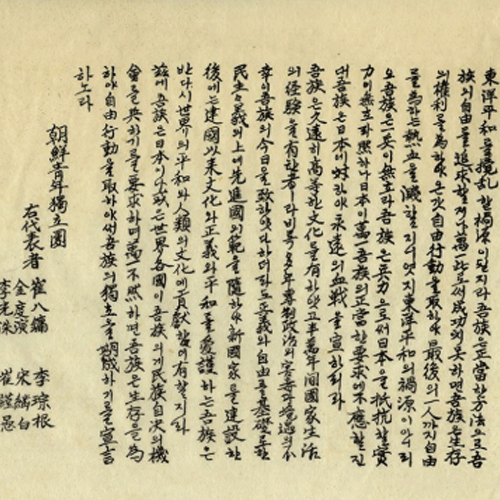 東洋平和를攪乱할禍源이될지라吾族은正當한方法으로吾
族의自由를追求할지나萬一此로써成功치못하면吾族은生存
의權利를爲하야온갓自由行動을取하야最後의一人까지自由
를爲하는熱血을濺할지니엇지東洋平和의禍源이아니리
오吾族은一兵이無호라吾族은兵力으로써日本을抵抗할實
力이無호라然하나日本이萬一吾族의正當한要求에不應할진
대吾族은日本에対하야永遠의血戰을宣하리라
吾族은久遠히高等한文化를有하얏고半萬年間國家生活
의経験을有한者라비록多年專制政治의害毒과境遇의不
幸이吾族의今日을致하얏다하더라도正義와自由를基礎로한
民主主義의上에先進國의範을隨하야新國家를建設한
後에는建國以来文化와正義와平和를愛護하는吾族은
반다시世界의平和와人類의文化에貢献함이有할지라
玆에吾族은日本이나或은世界各國이吾族의게民族自决의機
會를與하기를要求하며萬一不然하면吾族은生存을爲
하야自由行動을取하야써吾族의獨立을期成하기를宣言
하노라
朝鮮青年獨立團
右代表者 崔八鏞 李琮根
金度演 宋繼白
李光洙 崔謹愚